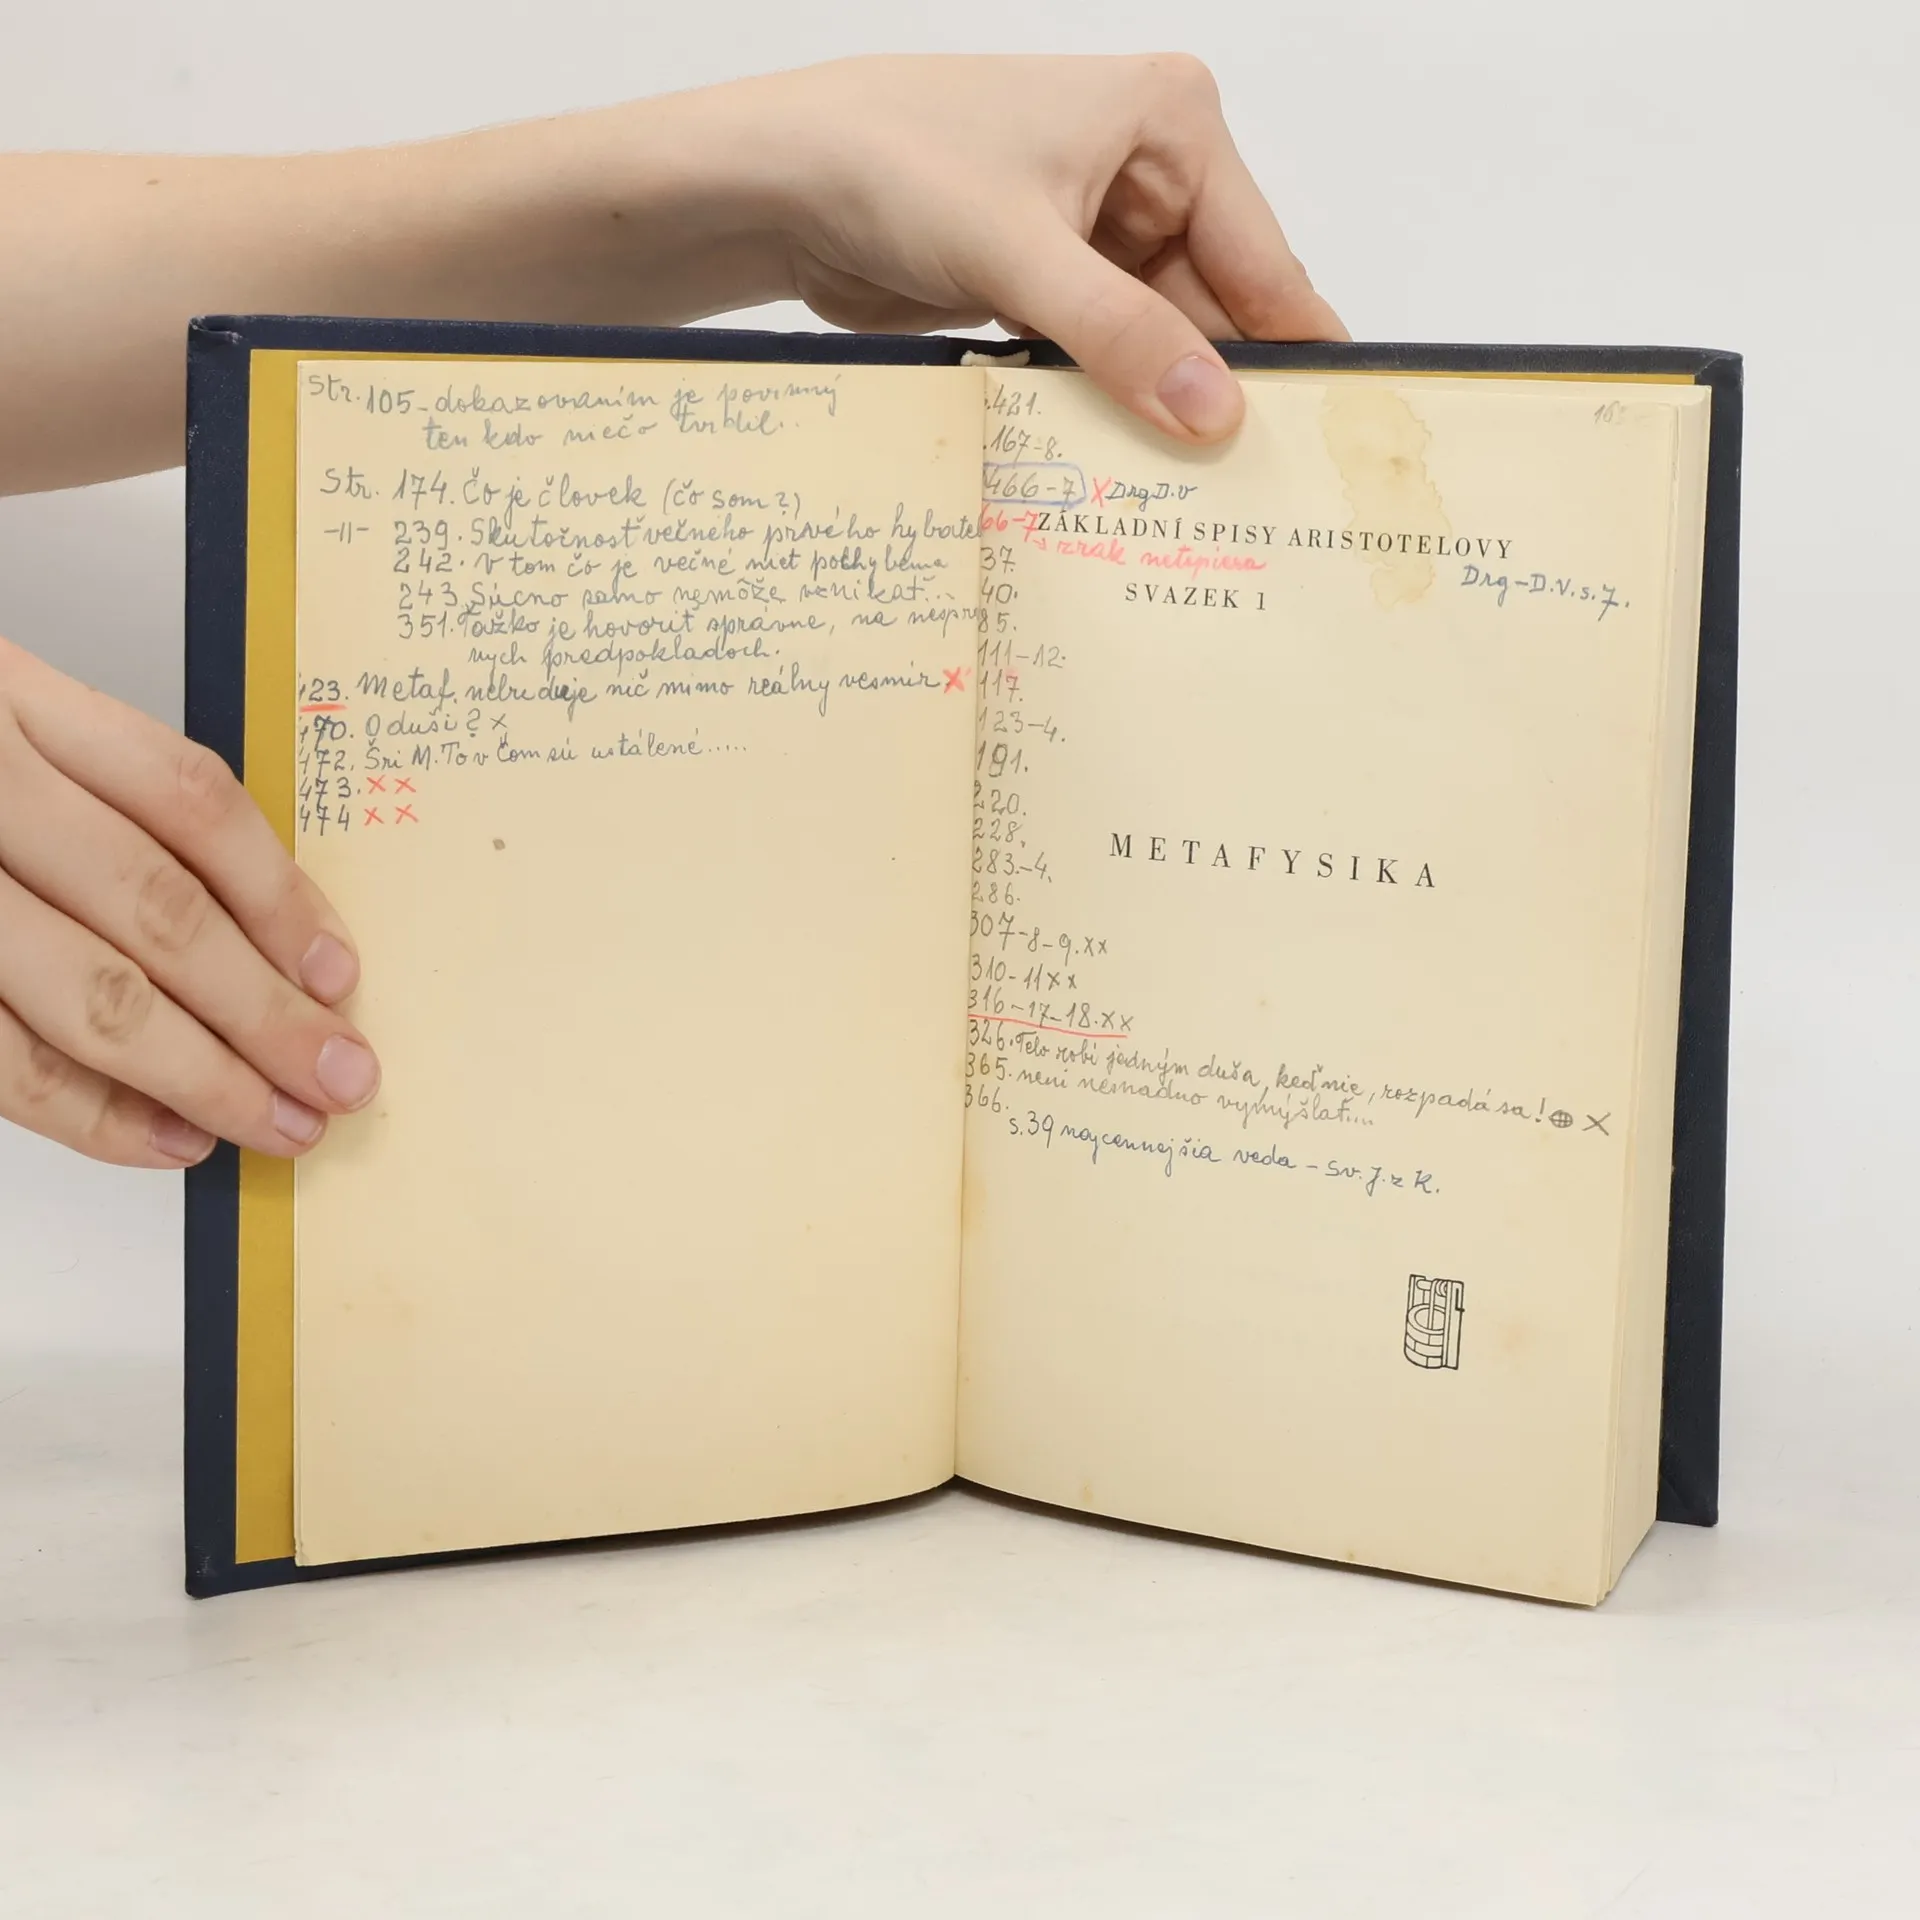 str. 105 - dokazovaním je povinný
ten kdo niečo tvrdil..
Str. 174. Čo je človek (čo som?)
-11- 239. Skutočnosť večného prvého hybateľ
242. V tom čo je večné niet pochybenia
243. Súcno samo nemôže vznikať...
351. Ťažko je hovoriť správne, na nespráv
nych predpokladoch.
423. Metaf. nebuduje nič mimo reálny vesmír. X
470. O duši? x
472. Šri M. To v čom sú ustálené.....
473. x x
474 x x
421.
167-8.
466-7 X Drg D.V
66-7
ZÁKLADNÍ SPISY ARISTOTELOVY
zrak netopiera
Drg-D.V.s.7.
37.
SVAZEK 1
40.
85.
111-12.
117.
123-4.
191.
220.
228.
METAFYSIKA
283-4.
286.
307-8-9.xx
310-11xx
316-17-18.xx
326. Telo robí jedným duša, keď nie, rozpadá sa! X
365. není nesnadno vymýšlať...
366.
s.39 najcennejšia veda - sv. J. z K.